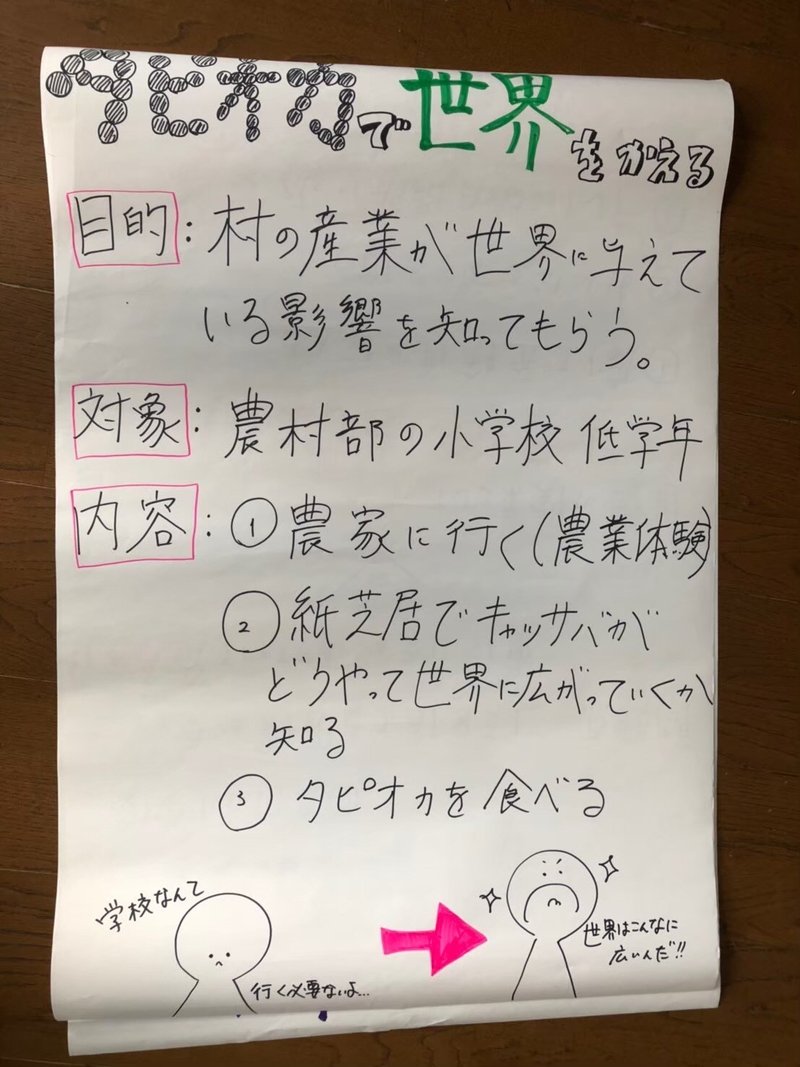 タピオカで世界をかえる
目的：村の産業が世界に与えて
いる影響を知ってもらう。
対象：農村部の小学校 低学年
内容：①農家に行く(農業体験)
②紙芝居でキャッサバが
どうやって世界に広がっていくか
知る
③タピオカを食べる
学校なんて
行く必要ないよ…
世界はこんなに
広いんだ!!